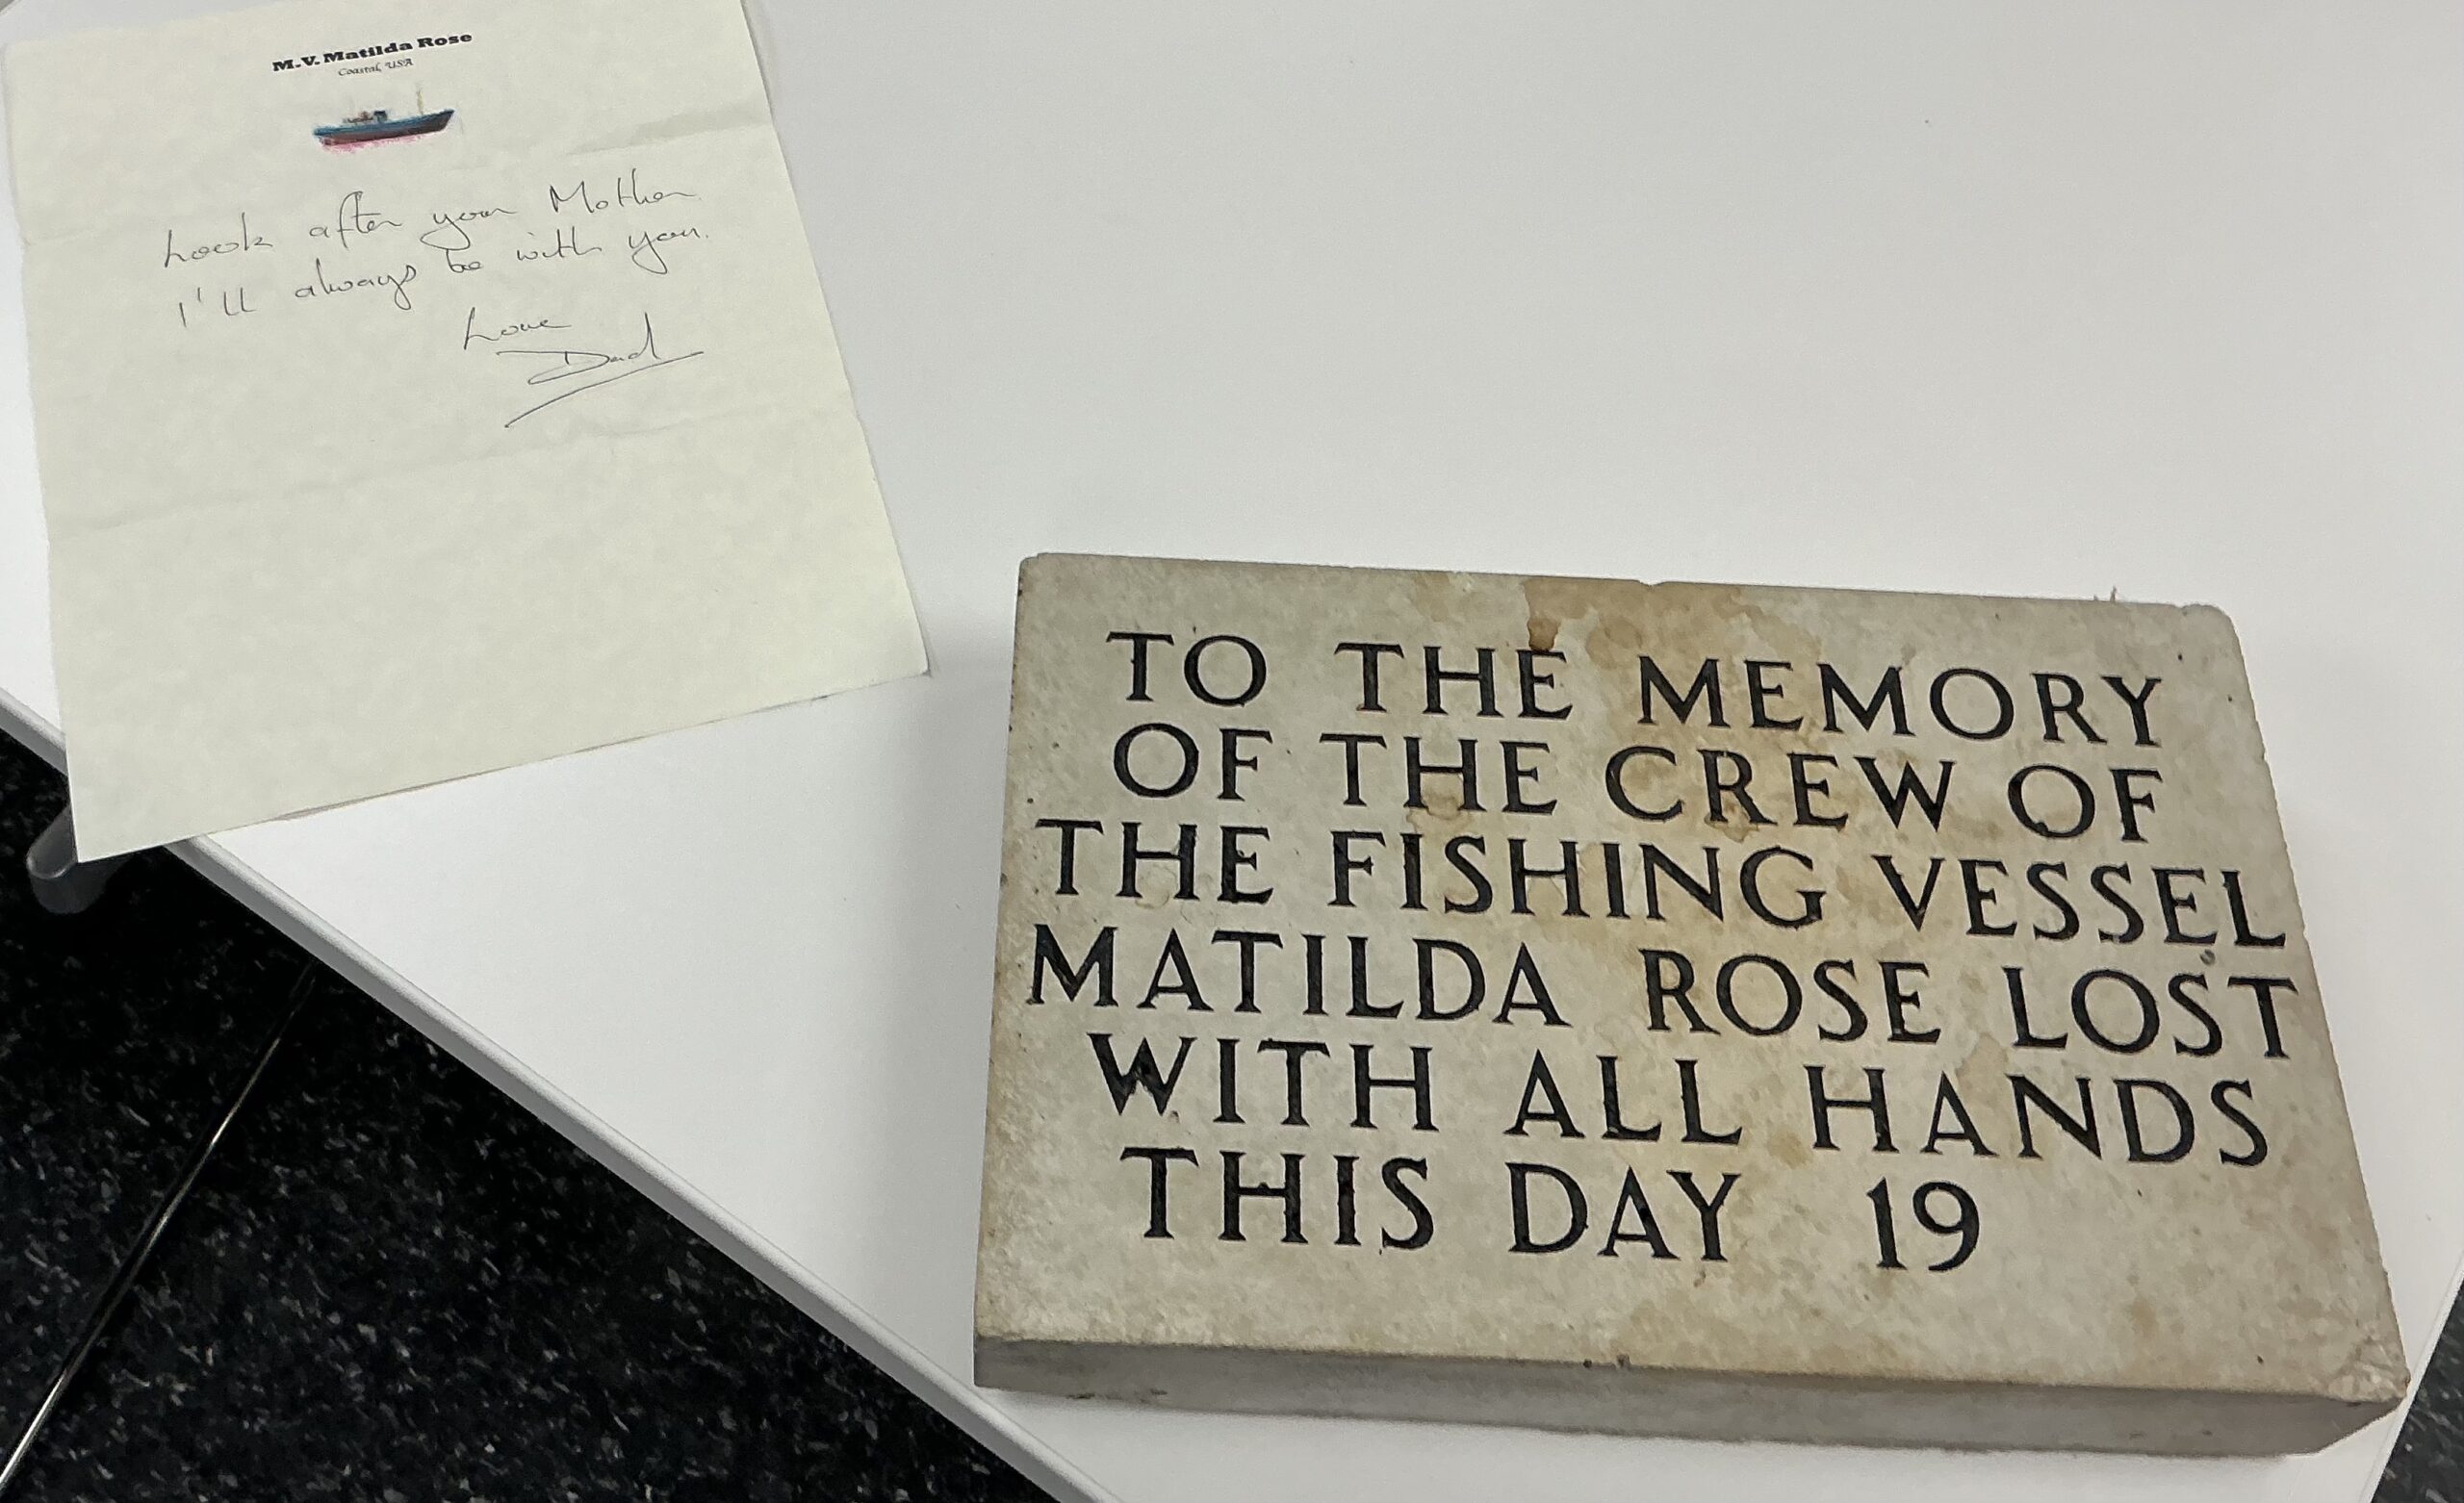 M.V. Matilda Rose
Coastal, USA
Look after your Mother
I'll always be with you.
Love
Dad
TO THE MEMORY
OF THE CREW OF
THE FISHING VESSEL
MATILDA ROSE LOST
WITH ALL HANDS
THIS DAY 19